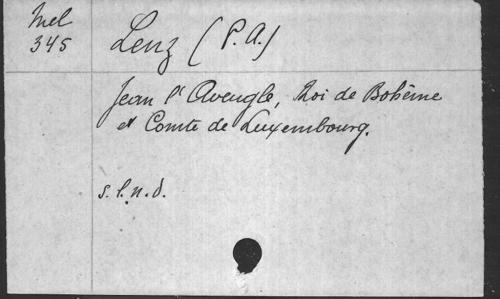 Mel
345
Lenz (P. A.)
Jean l'Aveugle, Roi de Bohême
et Comte de Luxembourg.
s. l. n. d.